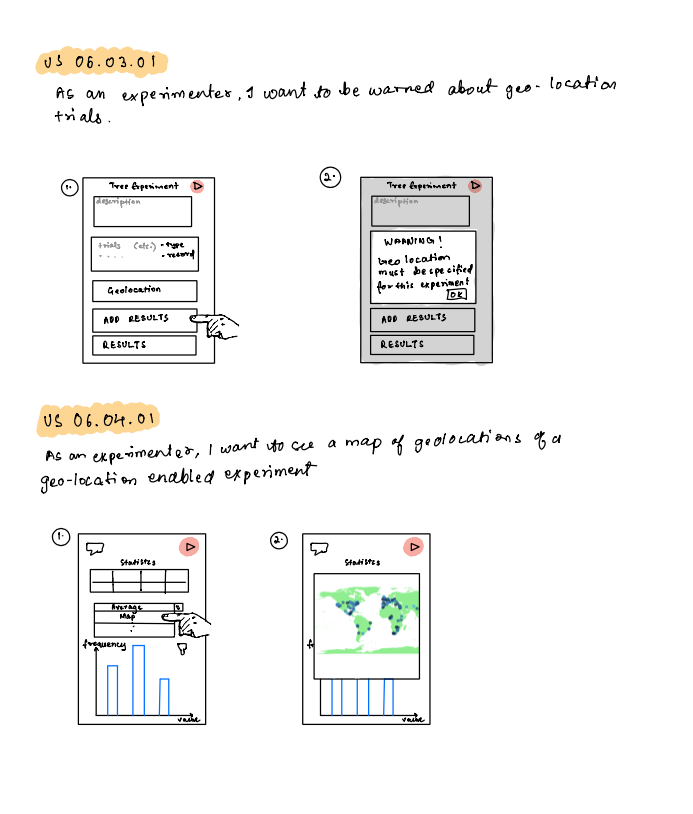 US 06.03.01
As an experimenter, I want to be warned about geo-location
trials.
1.
Tree Experiment
description
trials (etc.) - type
.... - record
Geolocation
ADD RESULTS
RESULTS
2.
Tree Experiment
description
WARNING!
Geo location
must be specified
for this experiment
OK
ADD RESULTS
RESULTS
US 06.04.01
As an experimenter, I want to see a map of geolocations of a
geo-location enabled experiment
1.
Statistics
Average
Map
frequency
value
2.
Statistics
value